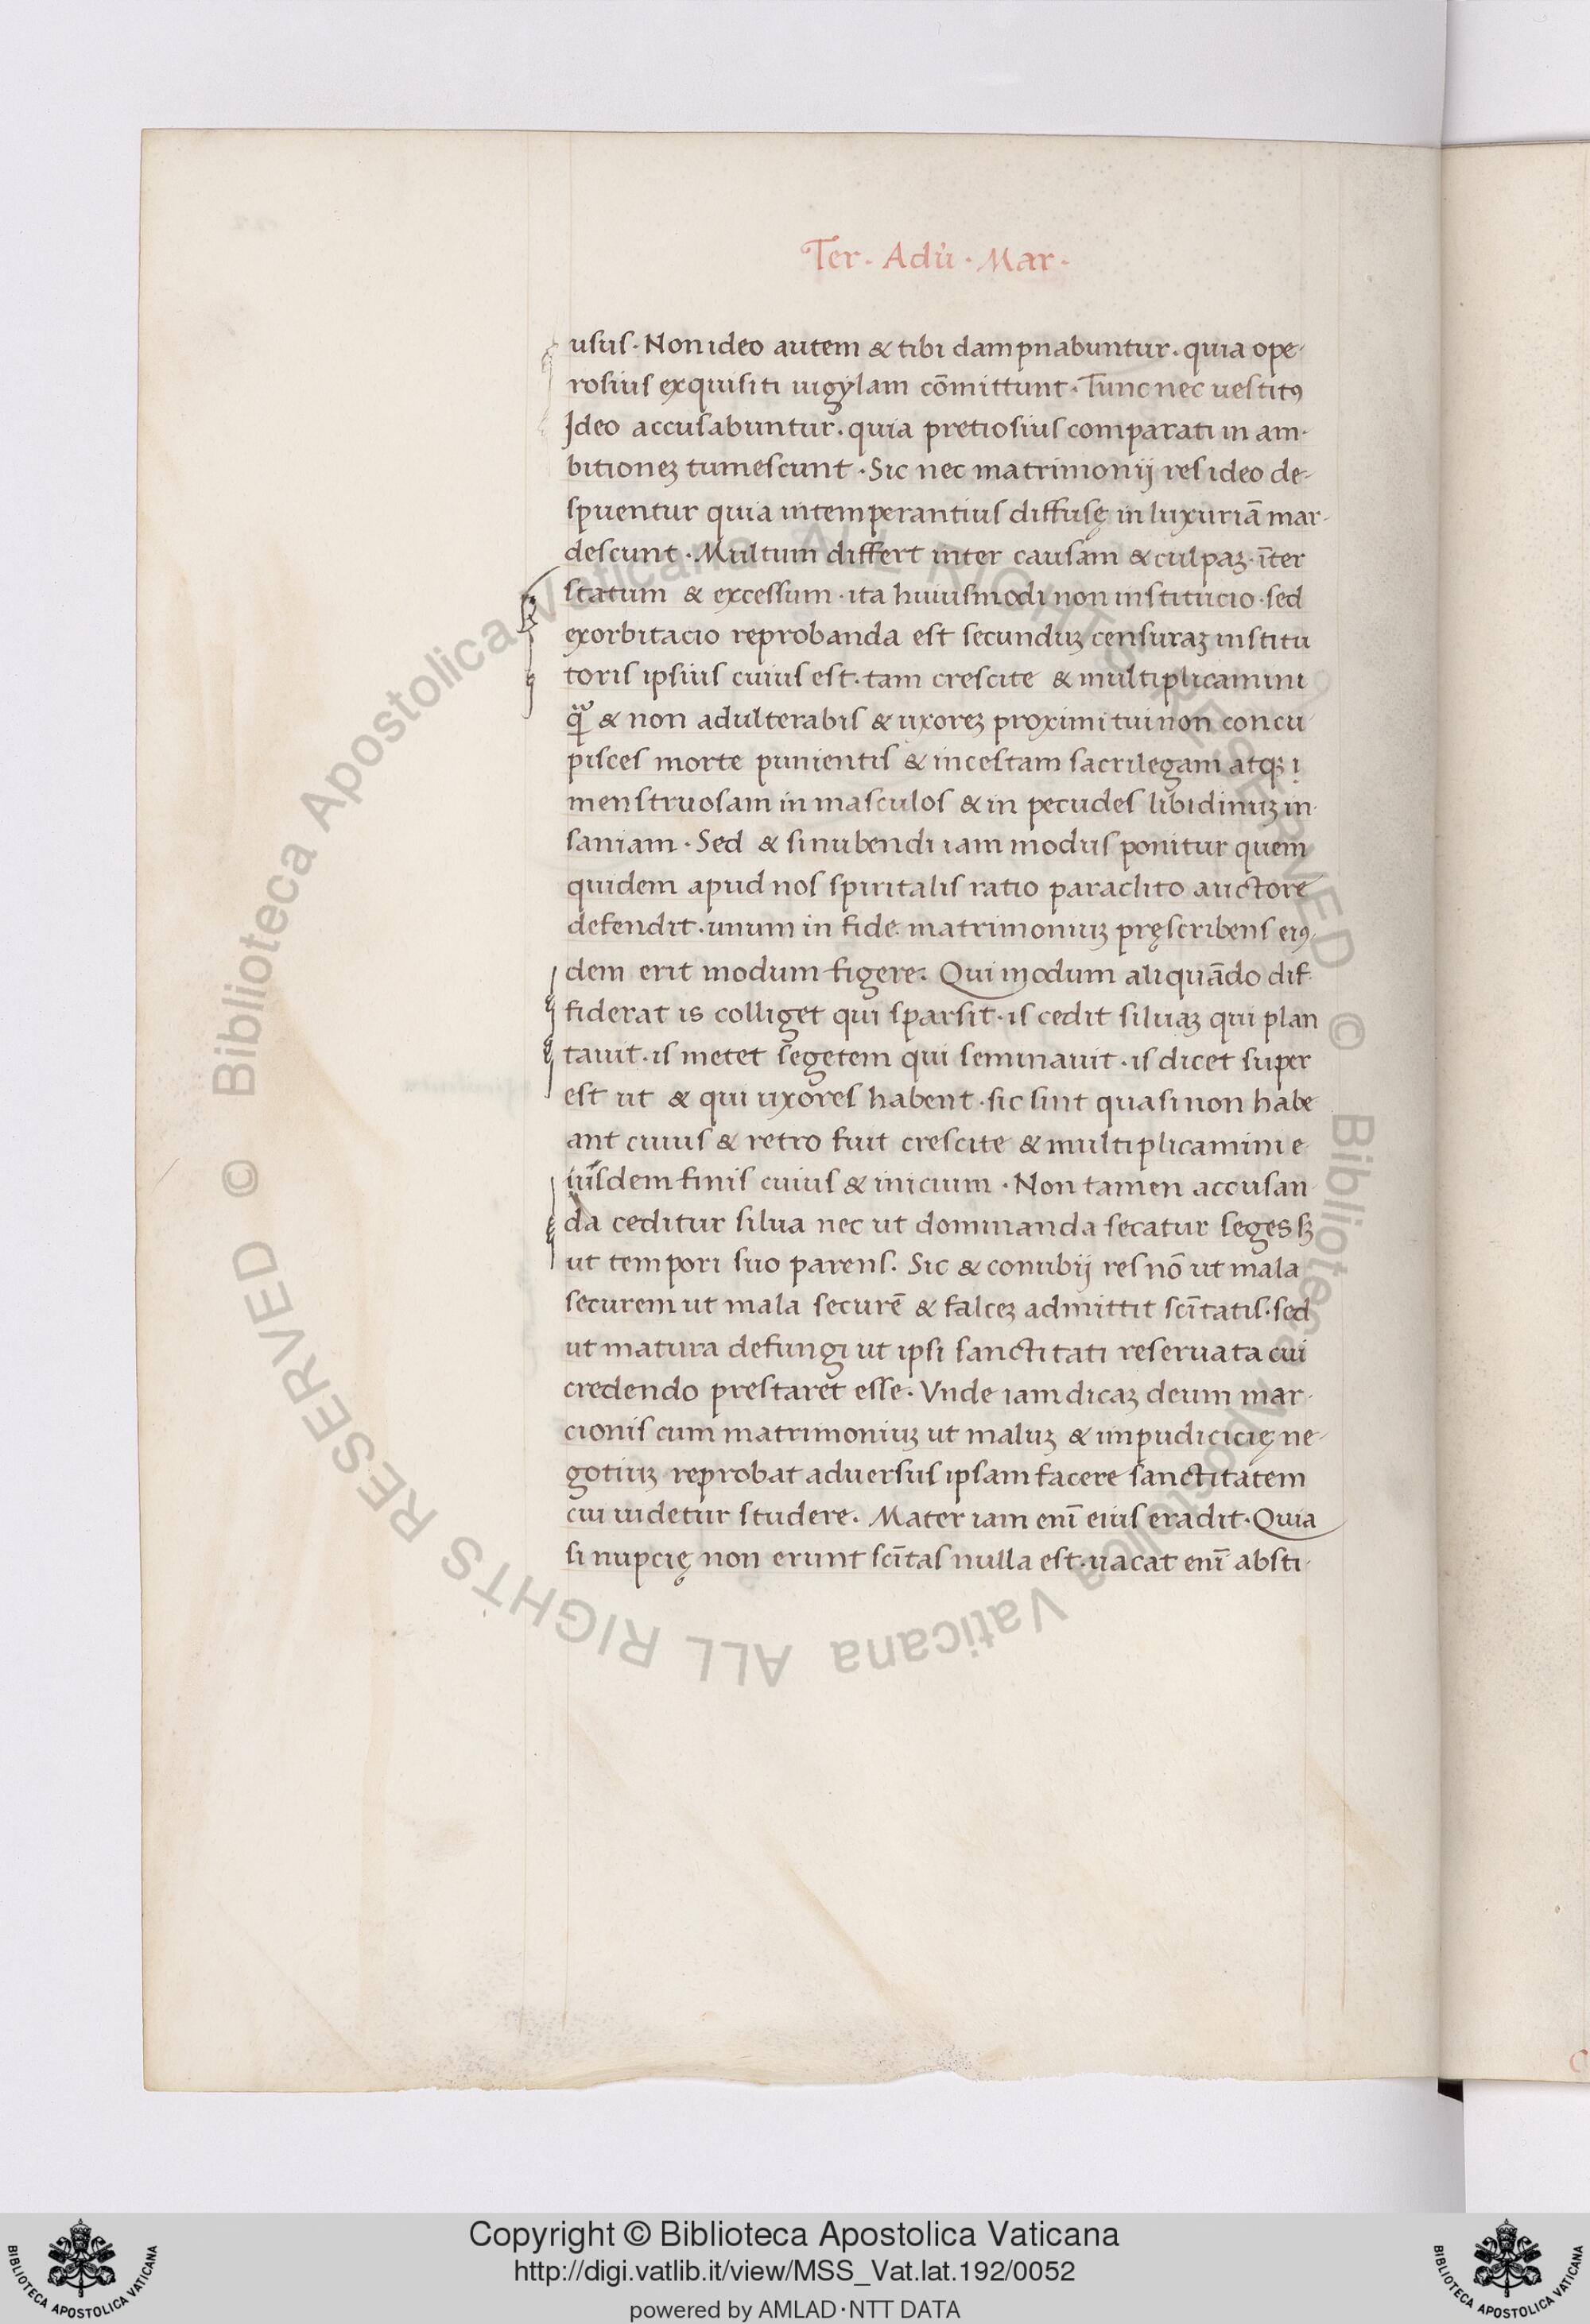 Ter. Adu̇. Mar.
usus. Non ideo autem & tibi dampnabuntur. quia ope-
rosius exquisiti uigylam cōmittunt. Tunc nec uestitꝰ
Ideo accusabuntur. quia pretiosius comparati in am-
bitioneꝫ tumescunt. Sic nec matrimonij res ideo de-
spuentur quia intemperantius diffusę in luxuriā mar-
descunt. Multum differt inter causam & culpaꝫ. īter
statum & excessum. ita huiusmodi non institucio. sed
exorbitacio reprobanda est secunduꝫ censuraꝫ institu
toris ipsius cuius est. tam crescite & multiplicamini
& non adulterabis & uxoreꝫ proximi tui non concu
pisces morte punientis & incestam sacrilegam atqꝫ i
menstruosam in masculos & in pecudes libidinuꝫ in-
saniam. Sed & si nubendi iam modus ponitur quem
quidem apud nos spiritalis ratio paraclito auctore
defendit. unum in fide matrimoniuꝫ pręscribens eiꝰ-
dem erit modum figere. Qui modum aliquādo dif-
fiderat is colliget qui sparsit. is cedit siluaꝫ qui plan
tauit. is metet segetem qui seminauit. is dicet super
est ut & qui uxores habent. sic sint quasi non habe
ant cuius & retro fuit crescite & multiplicamini e
iusdem finis cuius & inicium. Non tamen accusan
da ceditur silua nec ut domnanda secatur seges sꝫ
ut tempori suo parens. Sic & conubij res nō ut mala
securem ut mala securē & falceꝫ admittit sc̄itatis. sed
ut matura defungi ut ipsi sanctitati reseruata cui
credendo prestaret esse. Vnde iam dicaꝫ deum mar-
cionis cum matrimoniuꝫ ut maluꝫ & impudicicię ne-
gotiuꝫ reprobat aduersus ipsam facere sanctitatem
cui uidetur studere. Mater iam enī eius eradit. Quia
si nupcię non erunt sc̄itas nulla est. uacat enī absti-
Copyright © Biblioteca Apostolica Vaticana
http://digi.vatlib.it/view/MSS_Vat.lat.192/0052
powered by AMLAD·NTT DATA
BIBLIOTECA APOSTOLICA VATICANA
BIBLIOTECA APOSTOLICA VATICANA
© Biblioteca Apostolica Vaticana ALL RIGHTS RESERVED © Biblioteca Apostolica Vaticana ALL RIGHTS RESERVED